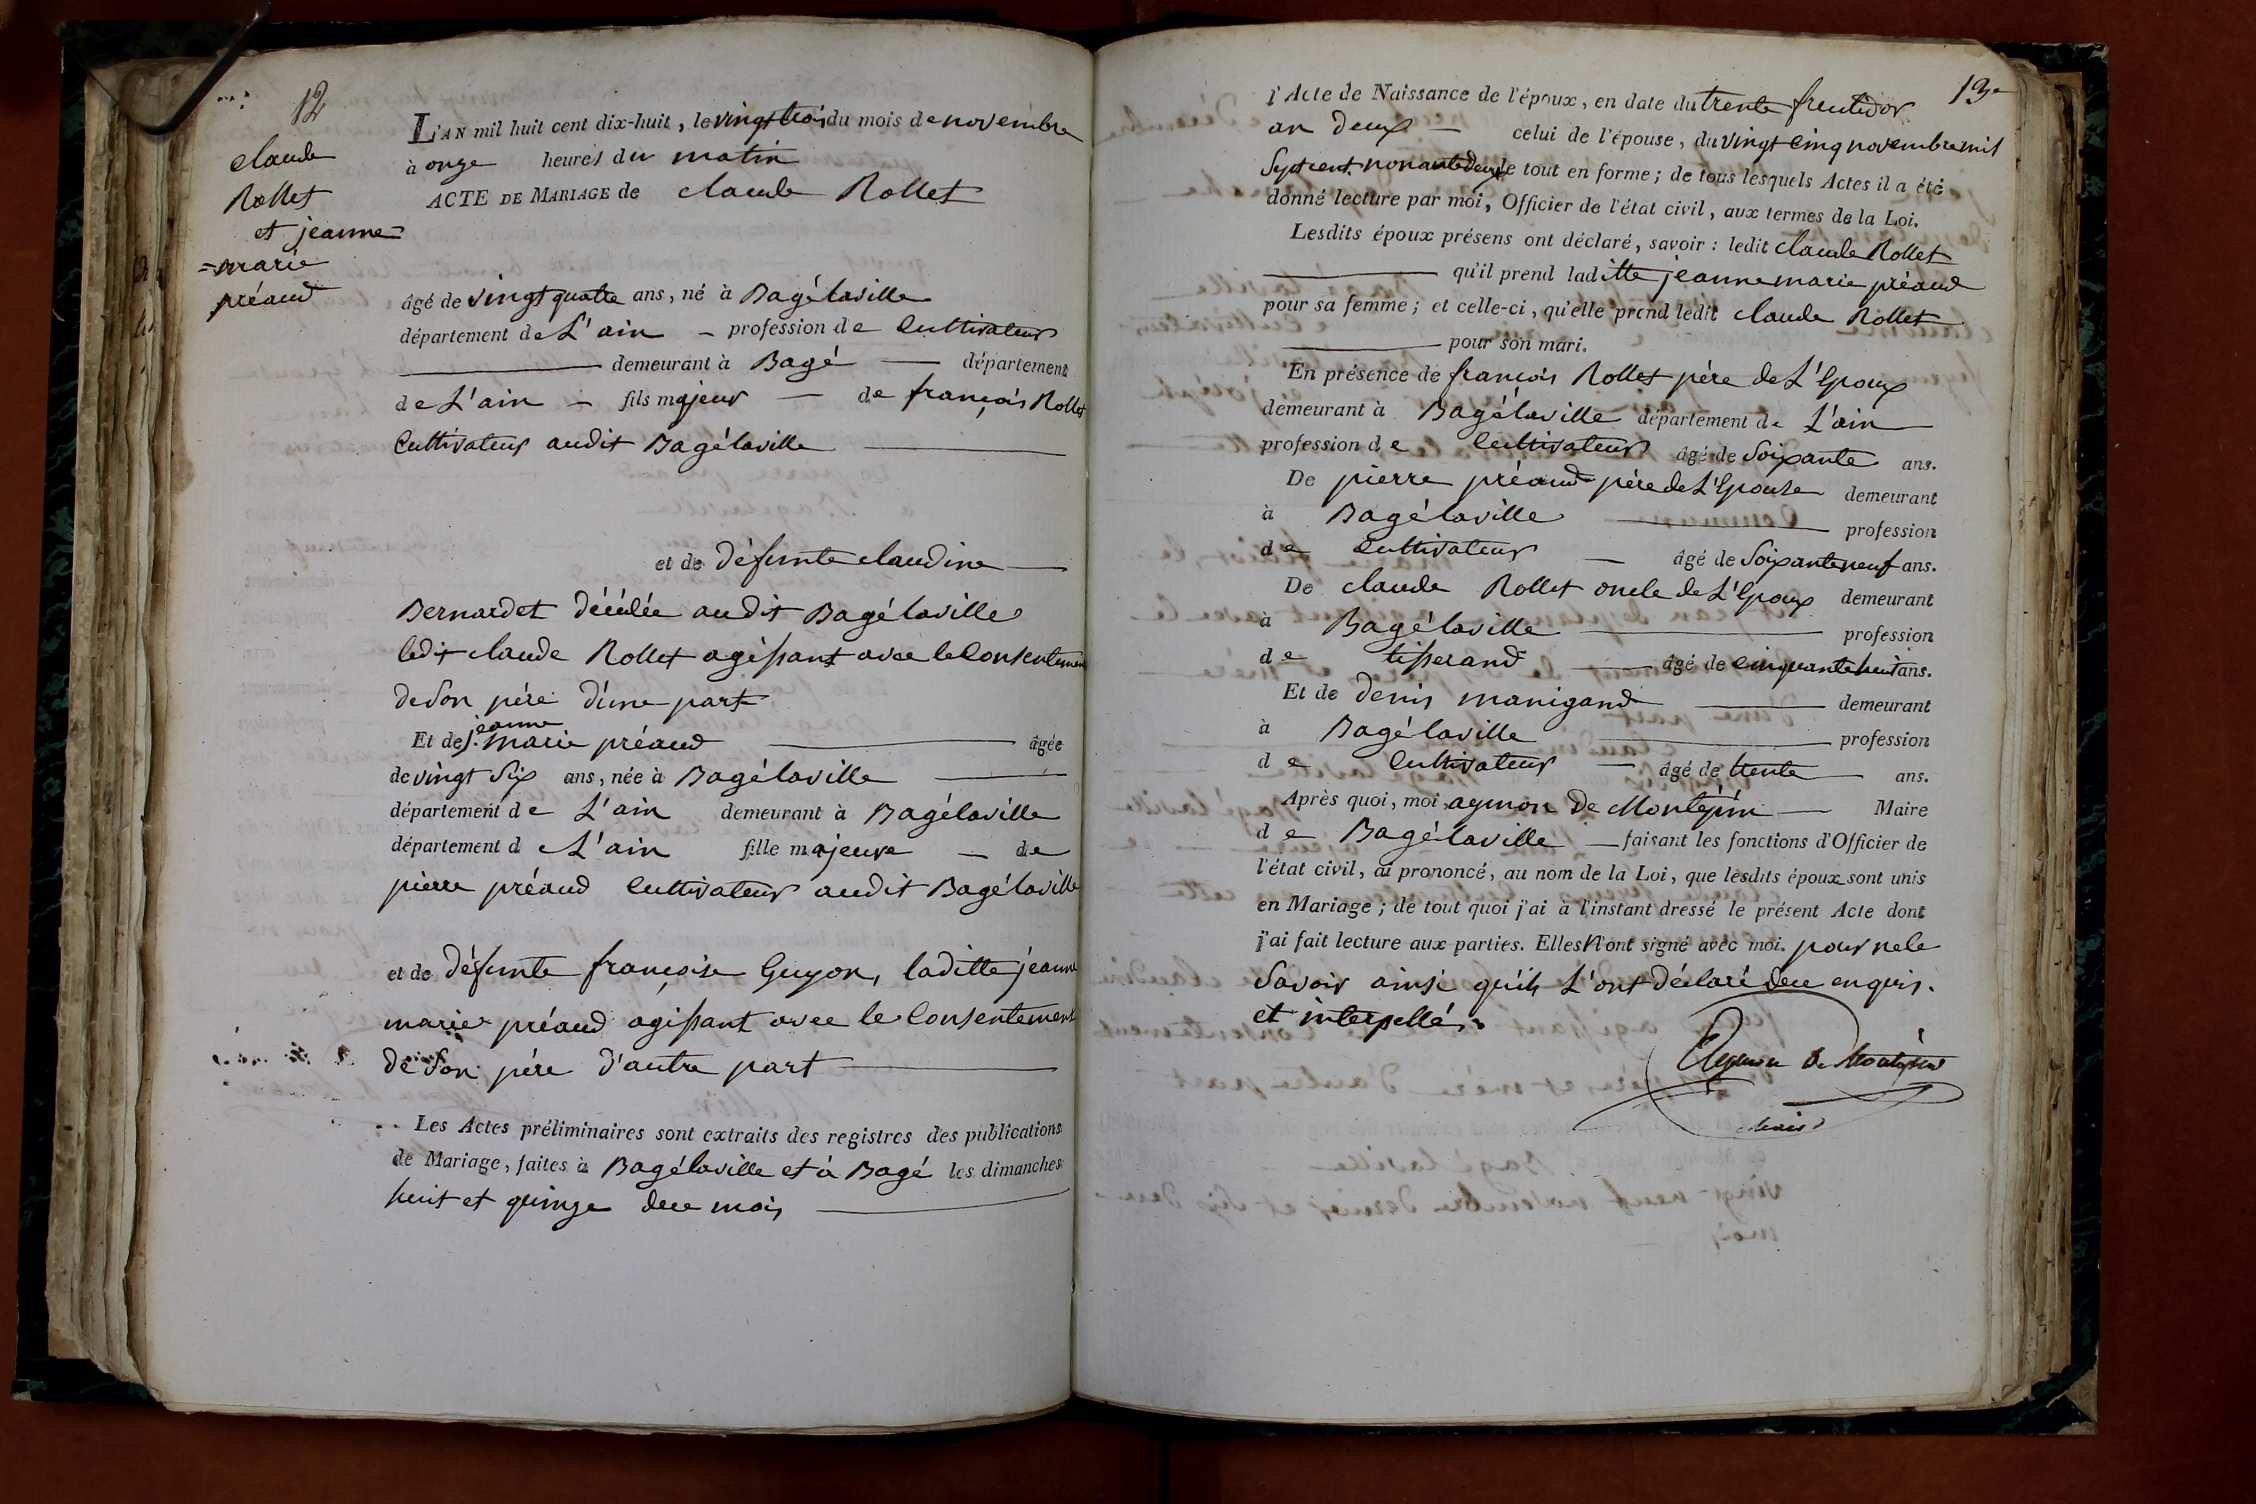 12
claude
Rollet
et jeanne
=marie
préaud
L'AN mil huit cent dix-huit, le vingt trois du mois de novembre
à onze heures du matin
ACTE DE MARIAGE de claude Rollet
âgé de vingt quatre ans, né à Bagélaville
département de L'ain – profession de Cultivateur
demeurant à Bagé — département
de L'ain – fils majeur — de françois Rollet
Cultivateur audit Bagélaville
et de défunte claudine —
Bernardet décédée audit Bagélaville
ledit claude Rollet agissant avec le Consentement
de Son père d'une part
jeanne
Et de j. marie préaud — âgée
de vingt Six ans, née à Bagélaville —
département de L'ain demeurant à Bagélaville
département de L'ain fille majeure — de
pierre préaud Cultivateur audit Bagélaville
et de défunte françoise Guyon, laditte jeanne
marie préaud agissant avec le Consentement
de Son père d'autre part —
Les Actes préliminaires sont extraits des registres des publications
de Mariage, faites à Bagélaville et à Bagé les dimanches
huit et quinze de ce mois —
13e
l'Acte de Naissance de l'époux, en date du trente fructidor
an deux — celui de l'épouse, du vingt cinq novembre mil
Sept cent nonante deux le tout en forme; de tous lesquels Actes il a été
donné lecture par moi, Officier de l'état civil, aux termes de la Loi.
Lesdits époux présens ont déclaré, savoir : ledit claude Rollet
— qu'il prend laditte jeanne marie préaud
pour sa femme; et celle-ci, qu'elle prend ledit claude Rollet
— pour son mari.
En présence de françois Rollet père de L'Epoux
demeurant à Bagélaville département de L'ain
profession de Cultivateur âgé de Soixante ans.
De pierre préaud père de L'Epouse demeurant
à Bagélaville — profession
de Cultivateur — âgé de Soixante neuf ans.
De claude Rollet oncle de L'Epoux demeurant
à Bagélaville — profession
de tisserand — âgé de cinquante huit ans.
Et de denis manigand — demeurant
à Bagélaville — profession
de Cultivateur — âgé de trente — ans.
Après quoi, moi aymon De Montépin — Maire
de Bagélaville — faisant les fonctions d'Officier de
l'état civil, ai prononcé, au nom de la Loi, que lesdits époux sont unis
en Mariage; de tout quoi j'ai à l'instant dressé le présent Acte dont
j'ai fait lecture aux parties. Elles n'ont signé avec moi. pour ne le
Savoir ainsi qu'ils L'ont déclaré de ce enquis.
et interpellés.
Aymon de Montépin
Maire